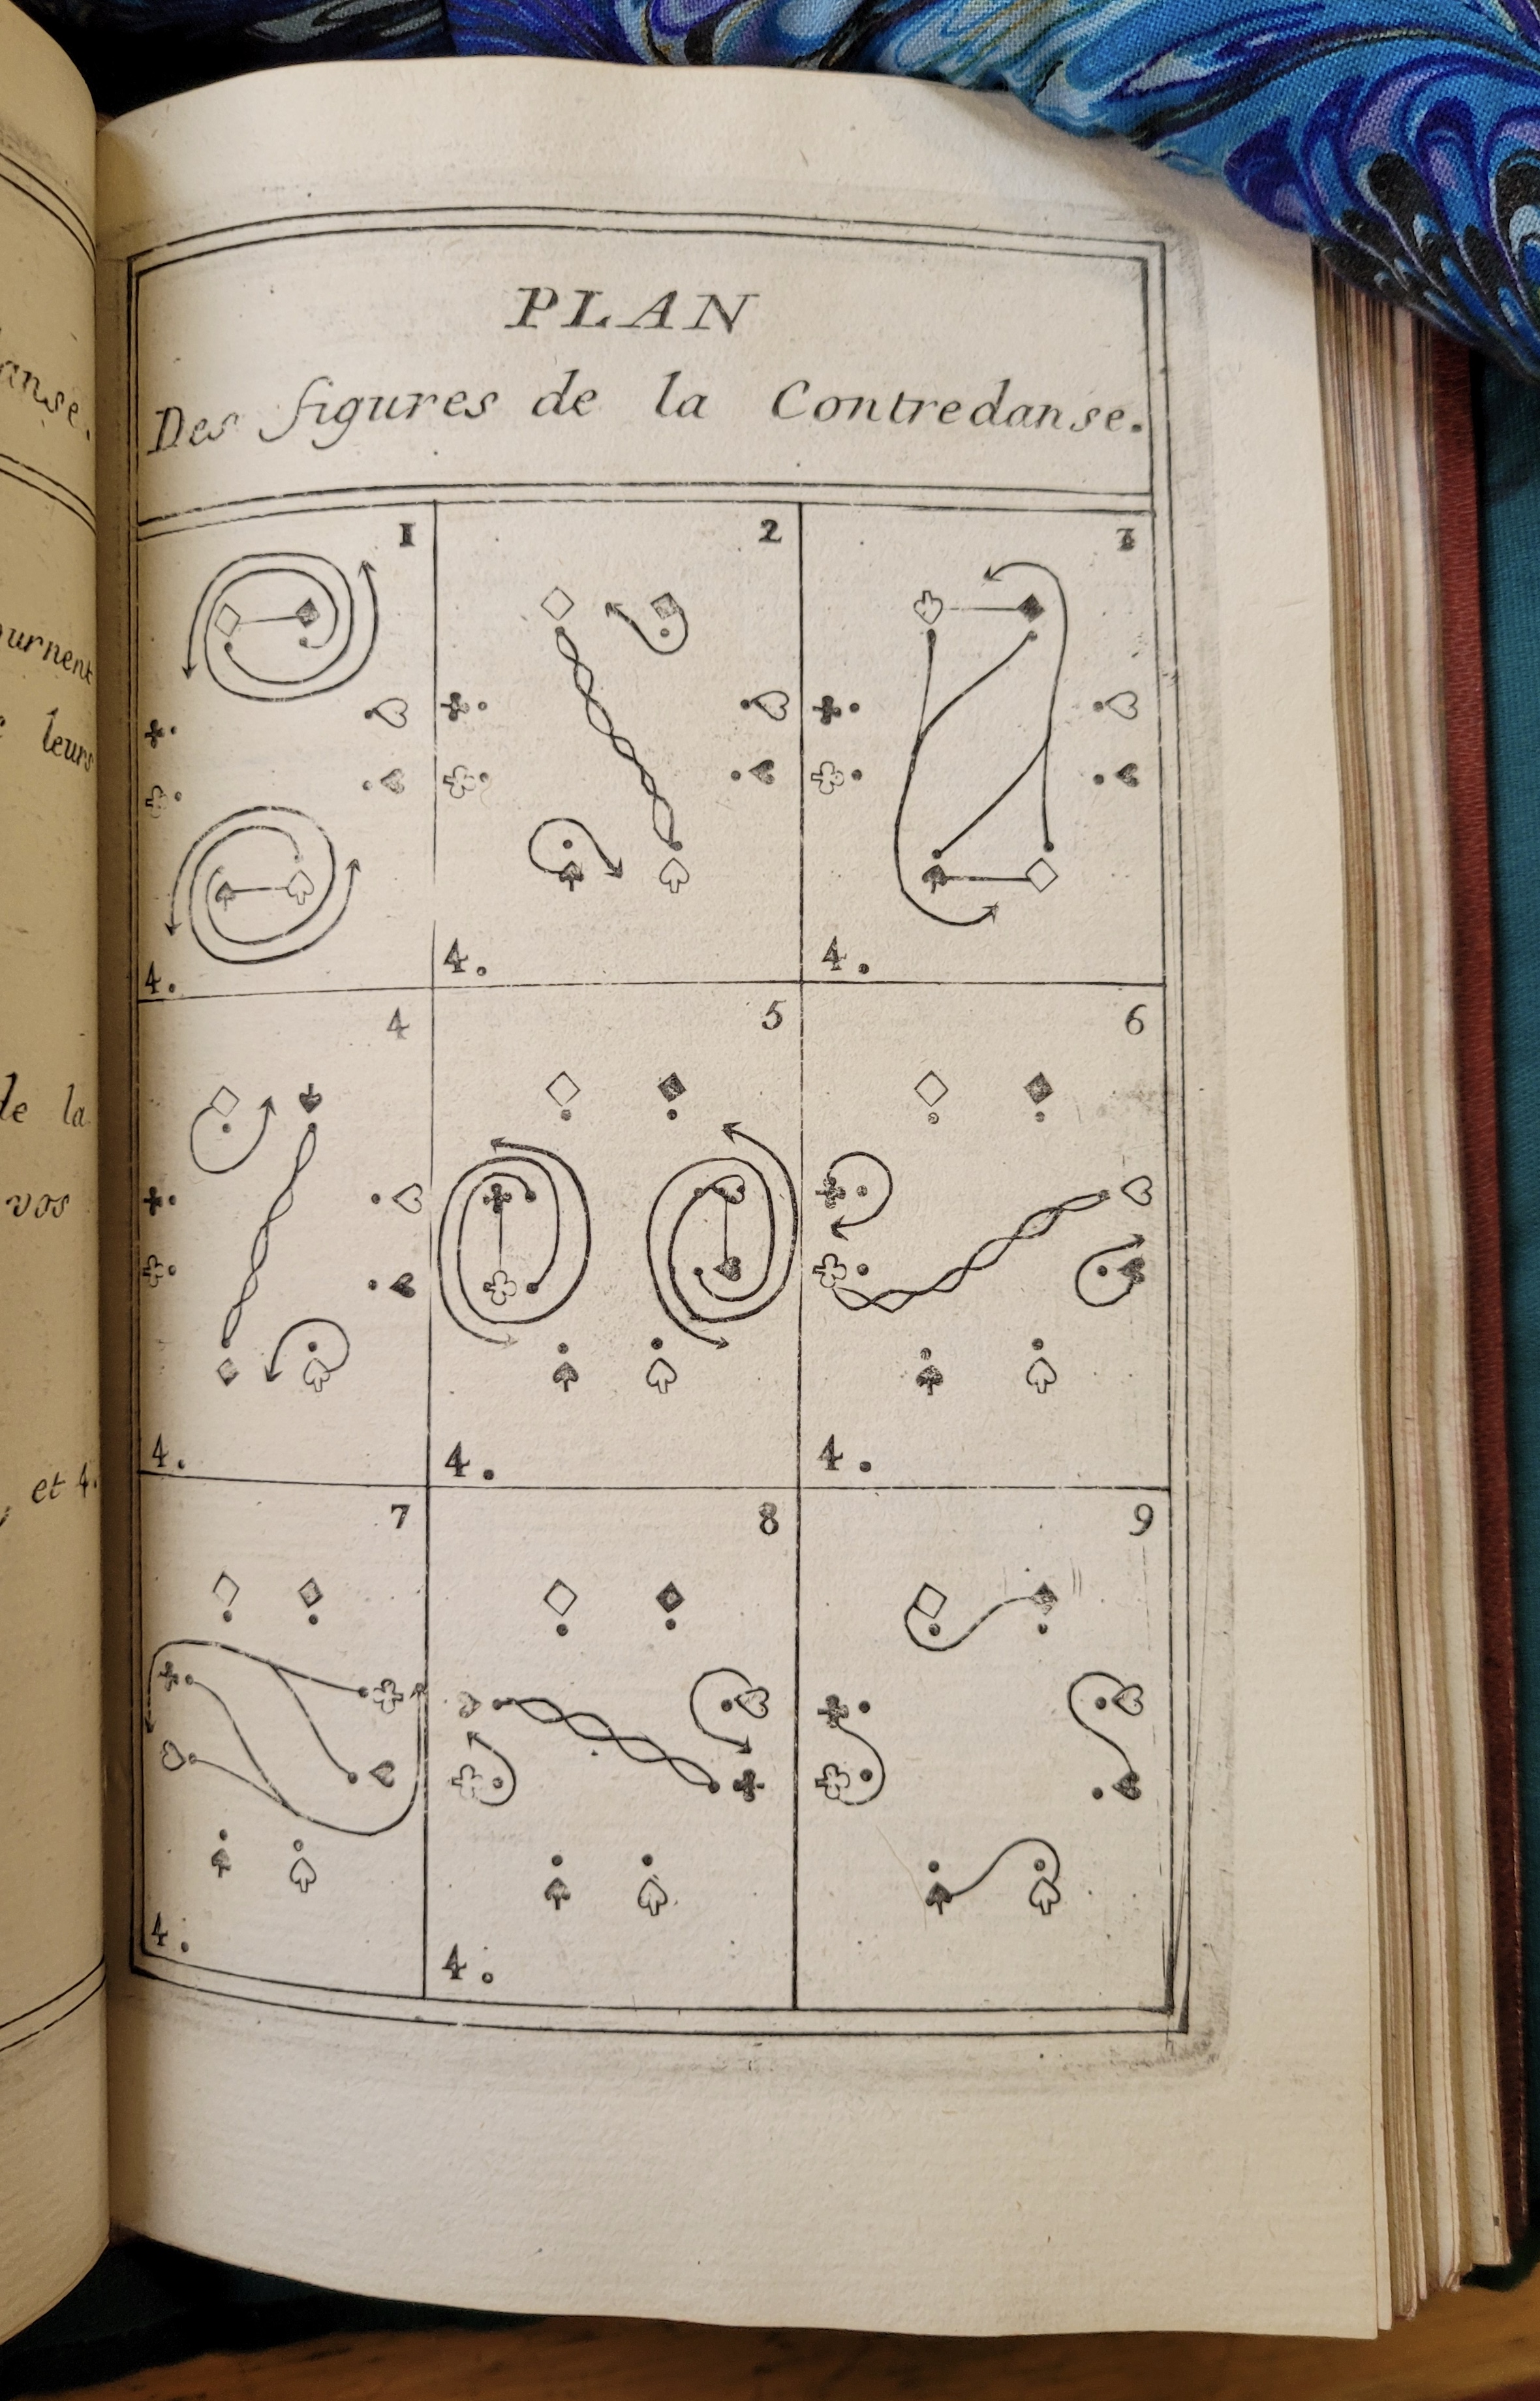 anse.
PLAN
Des figures de la Contredanse.
1
2
3
ournent
leurs
4.
4.
4.
4
5
6
de la
vos
et 4.
4.
4.
4.
7
8
9
4.
4.